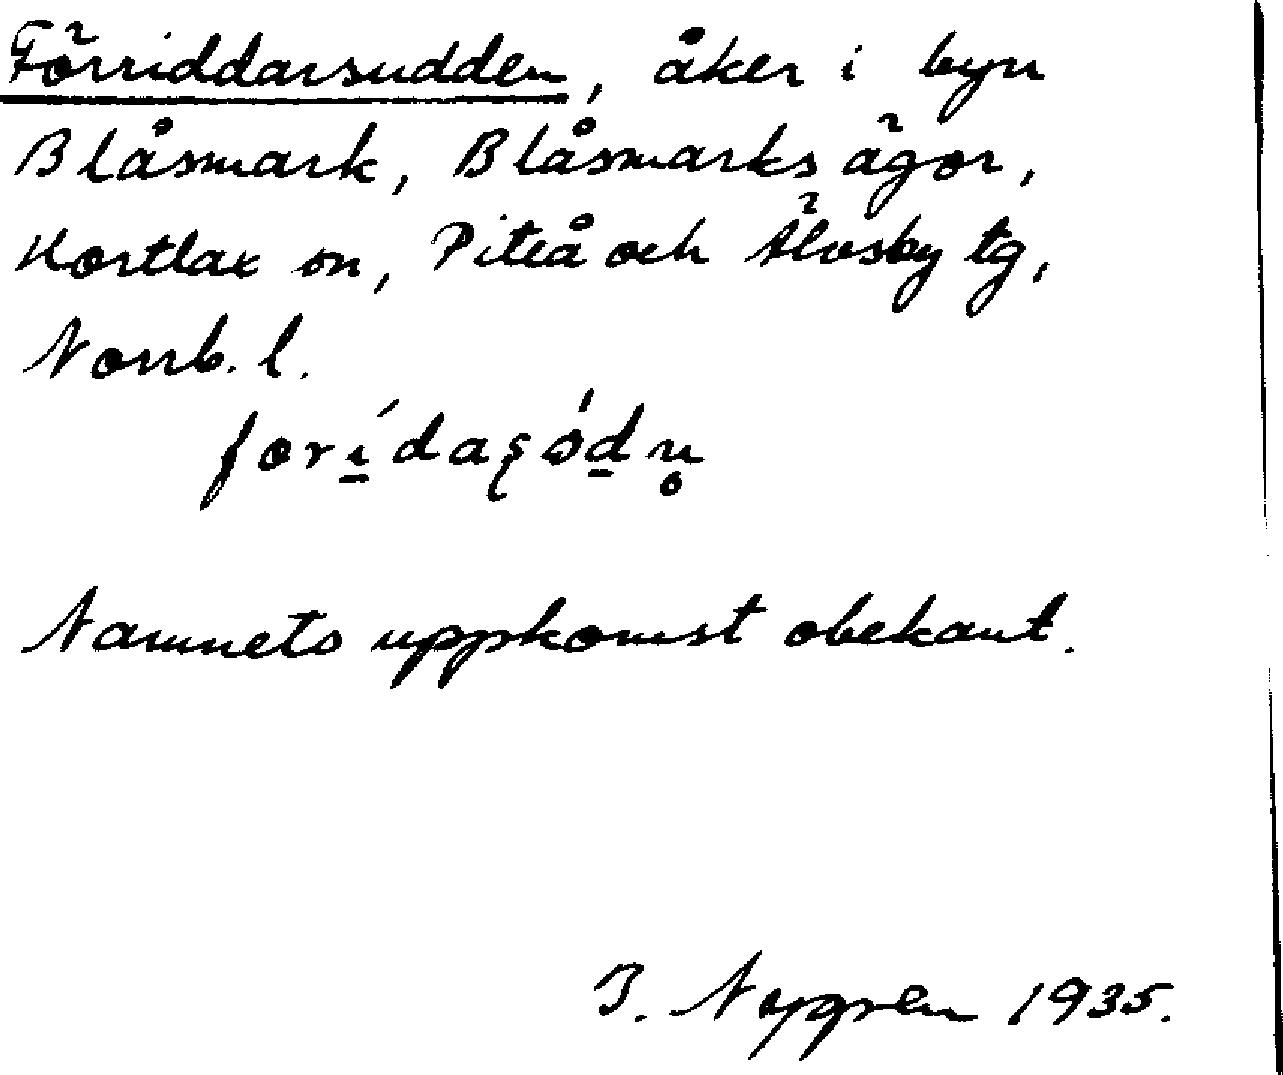 Förriddarsudden, åker i byn
Blåsmark, Blåsmarks ägor,
Hortlax sn, Piteå och Älvsby tg,
Norrb. l.
Namnets uppkomst obekant.
J. Nygren 1935.